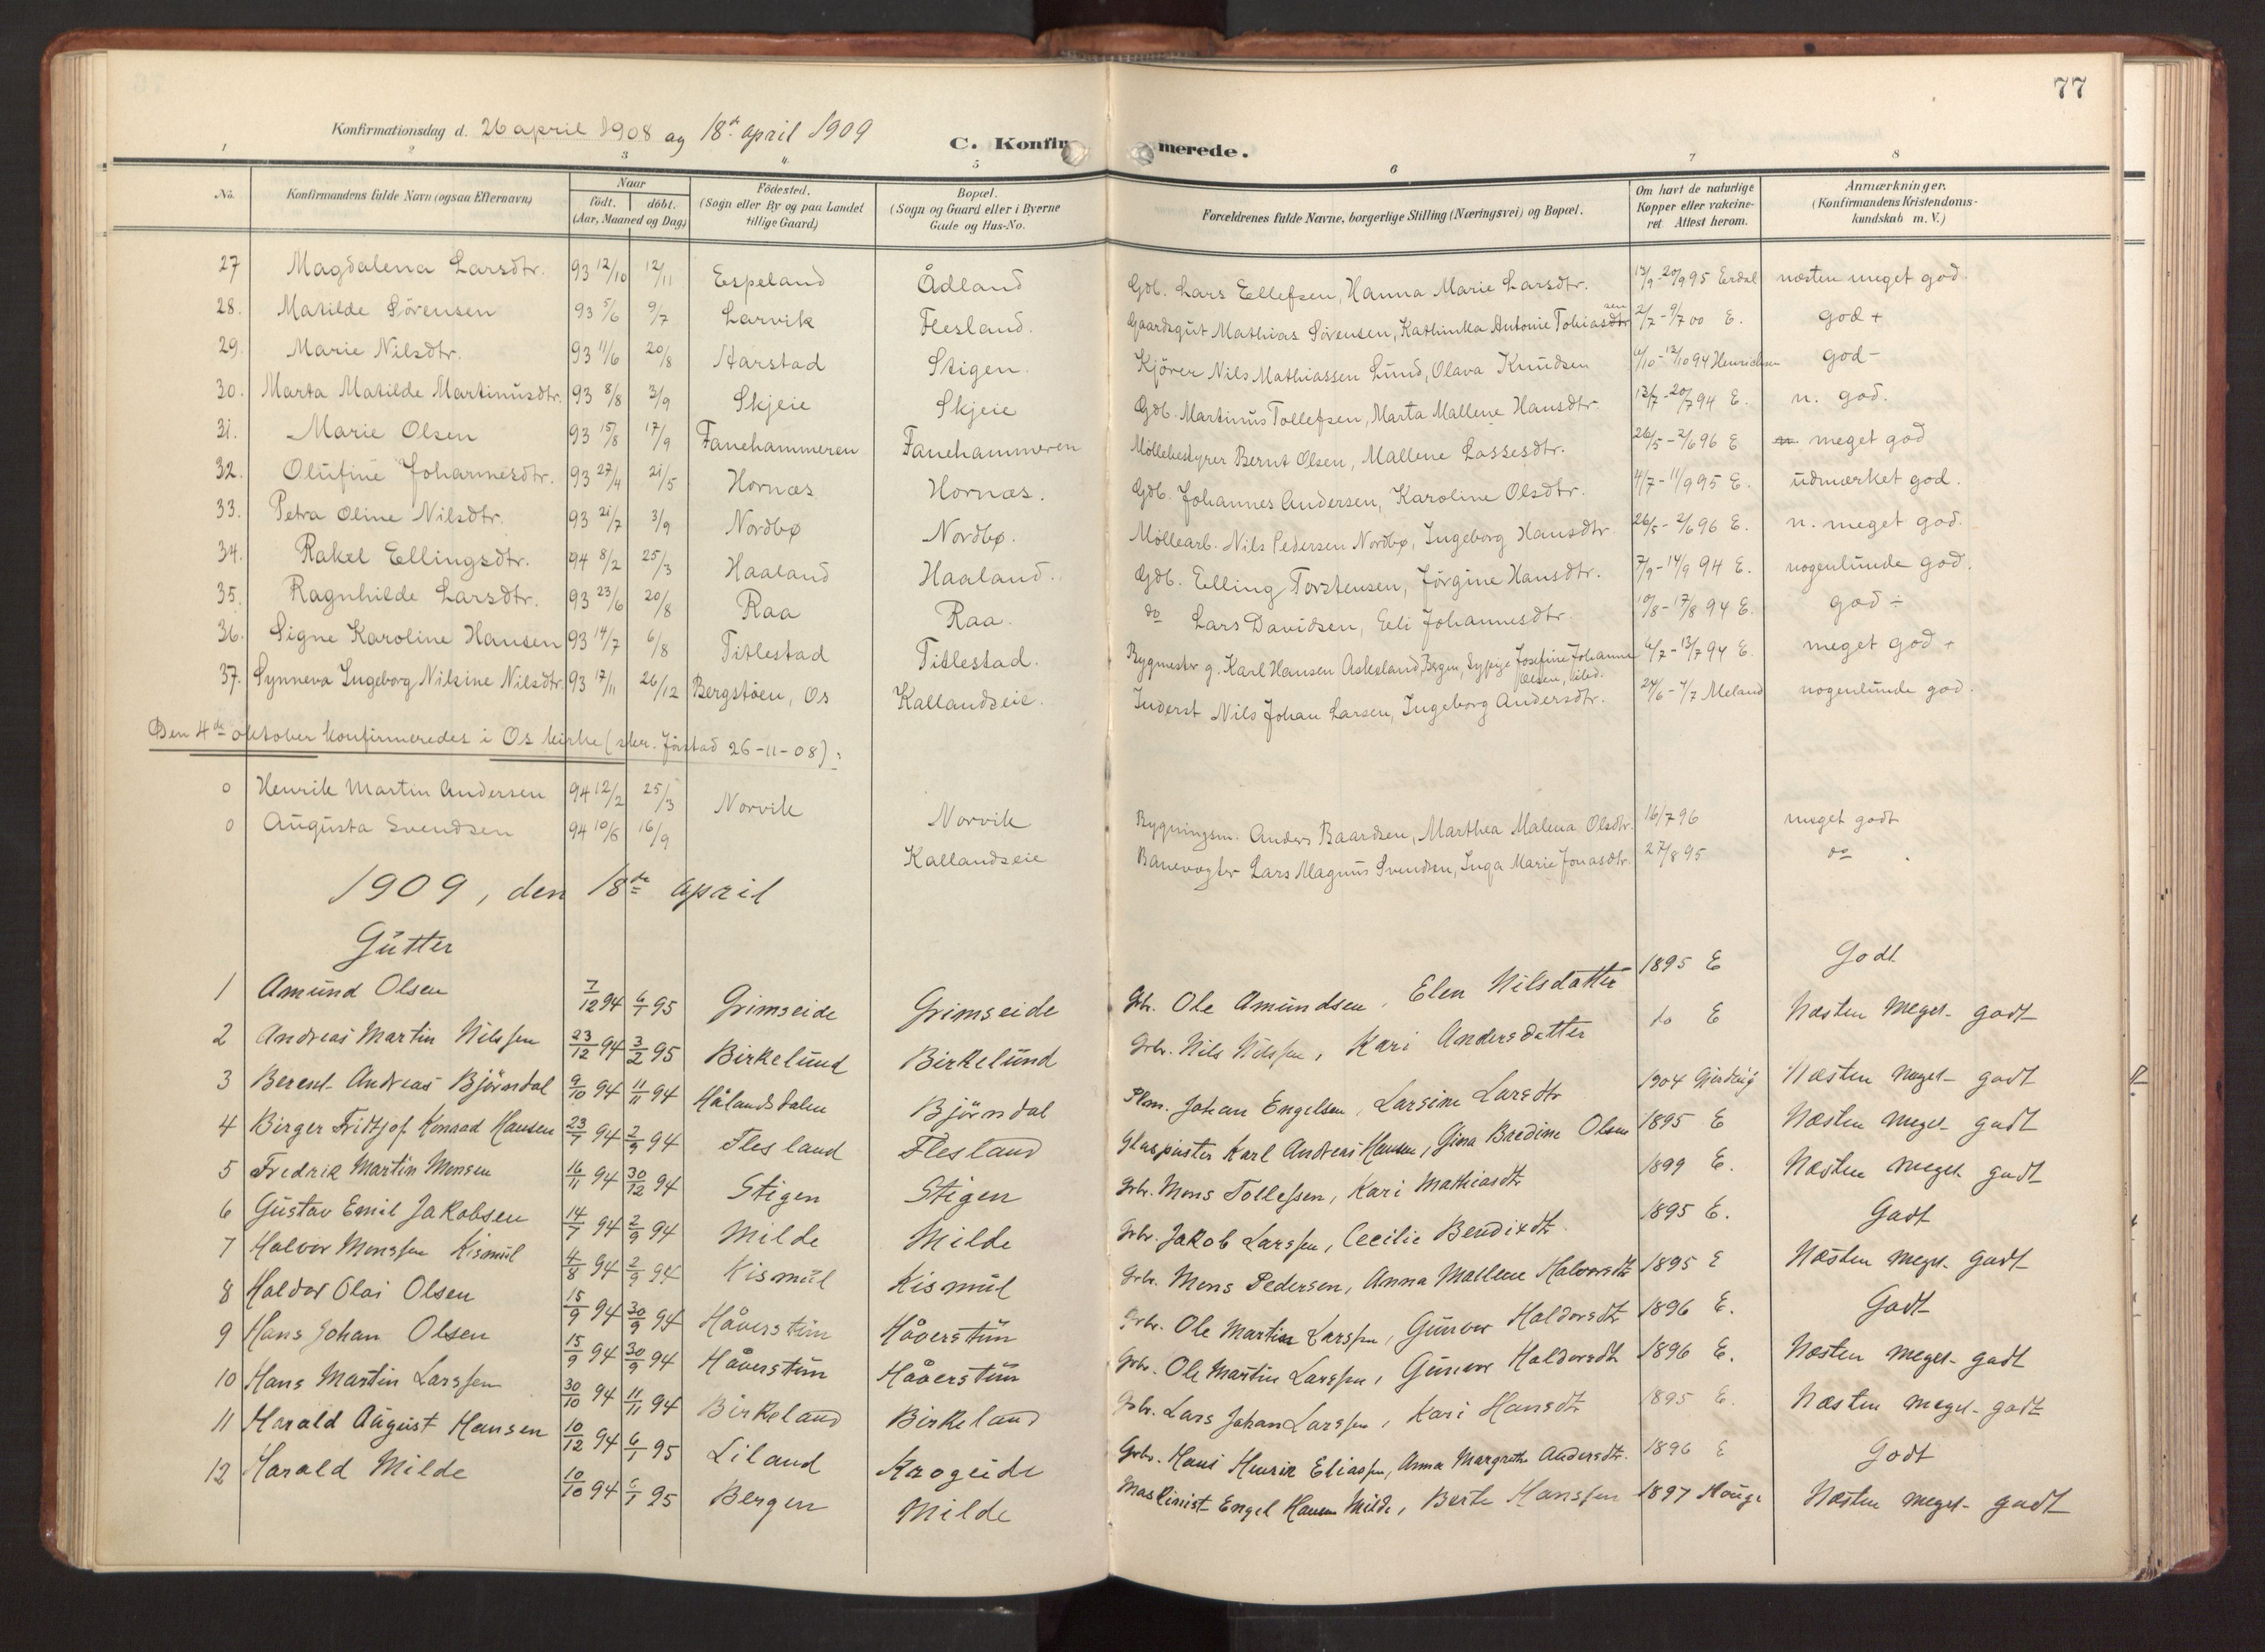 77
Konfirmationsdag d. 26 april 1908 og 18de april 1909
C. Konfirmerede.
1 2 3 4 5 6 7 8
No. Konfirmandens fulde Navn (ogsaa Efternavn) Naar født. døbt. (Aar, Maaned og Dag) Fødested. (Sogn eller By og paa Landet tillige Gaard) Bopæl. (Sogn og Gaard eller i Byerne Gade og Hus-No. Forældrenes fulde Navne, borgerlige Stilling (Næringsvei) og Bopæl. Om havt de naturlige Kopper eller vakcineret. Attest herom. Anmærkninger. (Konfirmandens Kristendomskundskab m. V.)
27 Magdalena Larsdtr. 93 12/10 12/11 Espeland Ådland Gdb. Lars Ellefsen, Hanna Marie Larsdtr. 13/9-20/9 95 Erdal næsten meget god.
28. Matilde Sørensen 93 5/6 9/7 Larvik Flesland. Gaardsgut Mathias Sørensen, Kathinka Antonie Tobiasdtr sen 2/7-9/7 00 E. god +
29. Marie Nilsdtr. 93 11/6 20/8 Harstad Stigen. Kjører Nils Mathiassen Lund, Olava Knudsen 6/10-13/10 94 Henrichsen god -
30. Marta Matilde Martinusdtr. 93 8/8 3/9 Skjeie Skjeie Gdb. Martinus Tollefsen, Marta Mallene Hansdtr. 13/7-20/7 94 E. n. god.
31. Marie Olsen 93 15/8 17/9 Fanehammeren Fanehammeren Møllebestyrer Bernt Olsen, Mallene Lassesdtr. 26/5-2/6 96 E meget god
32. Olufine Johannesdtr. 93 27/4 21/5 Hornæs Hornæs. Gdb. Johannes Andersen, Karoline Olsdtr. 4/7-11/9 95 E. udmærket god.
33. Petra Oline Nilsdtr. 93 21/7 3/9 Nordbø Nordbø. Møllearb. Nils Pedersen Nordbø, Ingeborg Hansdtr 26/5-2/6 96 E. n. meget god.
34. Rakel Ellingsdtr. 94 8/2 25/3 Haaland Haaland. Gdb. Elling Torstensen, Jørgine Hansdtr. 7/9-14/9 94 E. nogenlunde god.
35. Ragnhilde Larsdtr. 93 23/6 20/8 Raa Raa. do Lars Davidsen, Eeli Johannesdtr. 10/8-17/8 94 E. god ÷
36. Signe Karoline Hansen 93 14/7 6/8 Titlestad Titlestad. Bygmester g. Karl Hansen Askeland, Bergen, Sypige Josefine Johanne Olsen, 6/7-13/7 94 E. meget god +
37. Synneva Ingeborg Nilsine Nilsdtr. 93 17/11 26/12 Bergstøen, Os Kallandseie. Inderst Nils Johan Larsen, Ingeborg Andersdtr. 24/6-4/7 Meland nogenlunde god.
Den 4de oktober konfirmeredes i Os kirke (skr. Jørstad 26-11-08):
0 Henrik Martin Andersen 94 12/2 25/3 Norvik Norvik Bygningsm. Anders Baardsen, Marthea Malena Olsdtr. 16/7 96 meget godt
0 Augusta Svendsen 94 10/6 16/9 Kallandseie Banevogter Lars Magnus Svendsen, Inga Marie Jonasdtr. 27/8 95 do
1909, den 18de april
Gutter
1 Amund Olsen 7/12 94 6/1 95 Grimseide Grimseide Gbr. Ole Amundsen, Elen Nilsdatter 1895 E Godt
2 Andreas Martin Nilssen 23/12 94 3/2 95 Birkelund Birkelund Gbr. Nils Nilssen, Kari Andersdatter do E Næsten meget godt
3 Berent Andreas Bjørndal 9/10 94 11/11 94 Hålandsdalen Bjørndal Plm. Johan Engelsen, Larsine Larsdtr 1904 Næsten meget godt
4 Birger Fridtjof Konrad Hansen 23/7 94 2/9 94 Flesland Flesland Glaspuster Karl Andreas Hansen, Gina Bredine Olsen 1895 E Næsten meget godt
5 Fredrik Martin Monsen 16/11 94 30/12 94 Stigen Stigen Gbr. Mons Tollefsen, Kari Mathiasdtr 1899 E. Næsten meget godt
6 Gustav Emil Jakobsen 14/7 94 2/9 94 Milde Milde Gbr. Jakob Larssen, Cecilie Bendixdtr. 1895 E. Godt
7 Halvor Monssen Kismul 4/8 94 2/9 94 Kismul Kismul Gbr. Mons Pedersen, Anna Mallene Halvorsdtr 1895 E Næsten meget godt
8 Haldor Olai Olsen 15/9 94 30/9 94 Håverstun Håverstun Gbr. Ole Martin Larssen, Gunvor Haldorsdtr 1896 E. Godt
9 Hans Johan Olsen 15/9 94 30/9 94 Håverstun Håverstun Gbr. Ole Martin Larssen, Gunvor Haldorsdtr 1896 E. Næsten meget godt
10 Hans Martin Larssen 30/10 94 11/11 94 Birkeland Birkeland Gbr. Lars Johan Larssen, Kari Hansdtr 1895 E. Næsten meget godt
11 Harald August Hansen 10/12 94 6/1 95 Liland Krogeide Gbr. Hans Henrik Eliassen, Anna Margrethe Andersdtr. 1896 E Godt
12 Harald Milde 10/10 94 6/1 95 Bergen Milde Maskinist Engel Hansen Milde, Berte Hanssen 1897 Næsten meget godt